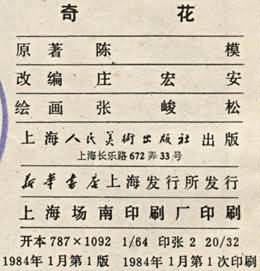 奇花
原著 陈模
改编 庄宏安
绘画 张峻松
上海人民美術出版社出版
上海长乐路672弄33号
新华書店上海发行所发行
上海场南印刷厂印刷
开本787×1092 1/64 印张2 20/32
1984年1月第1版 1984年1月第1次印刷